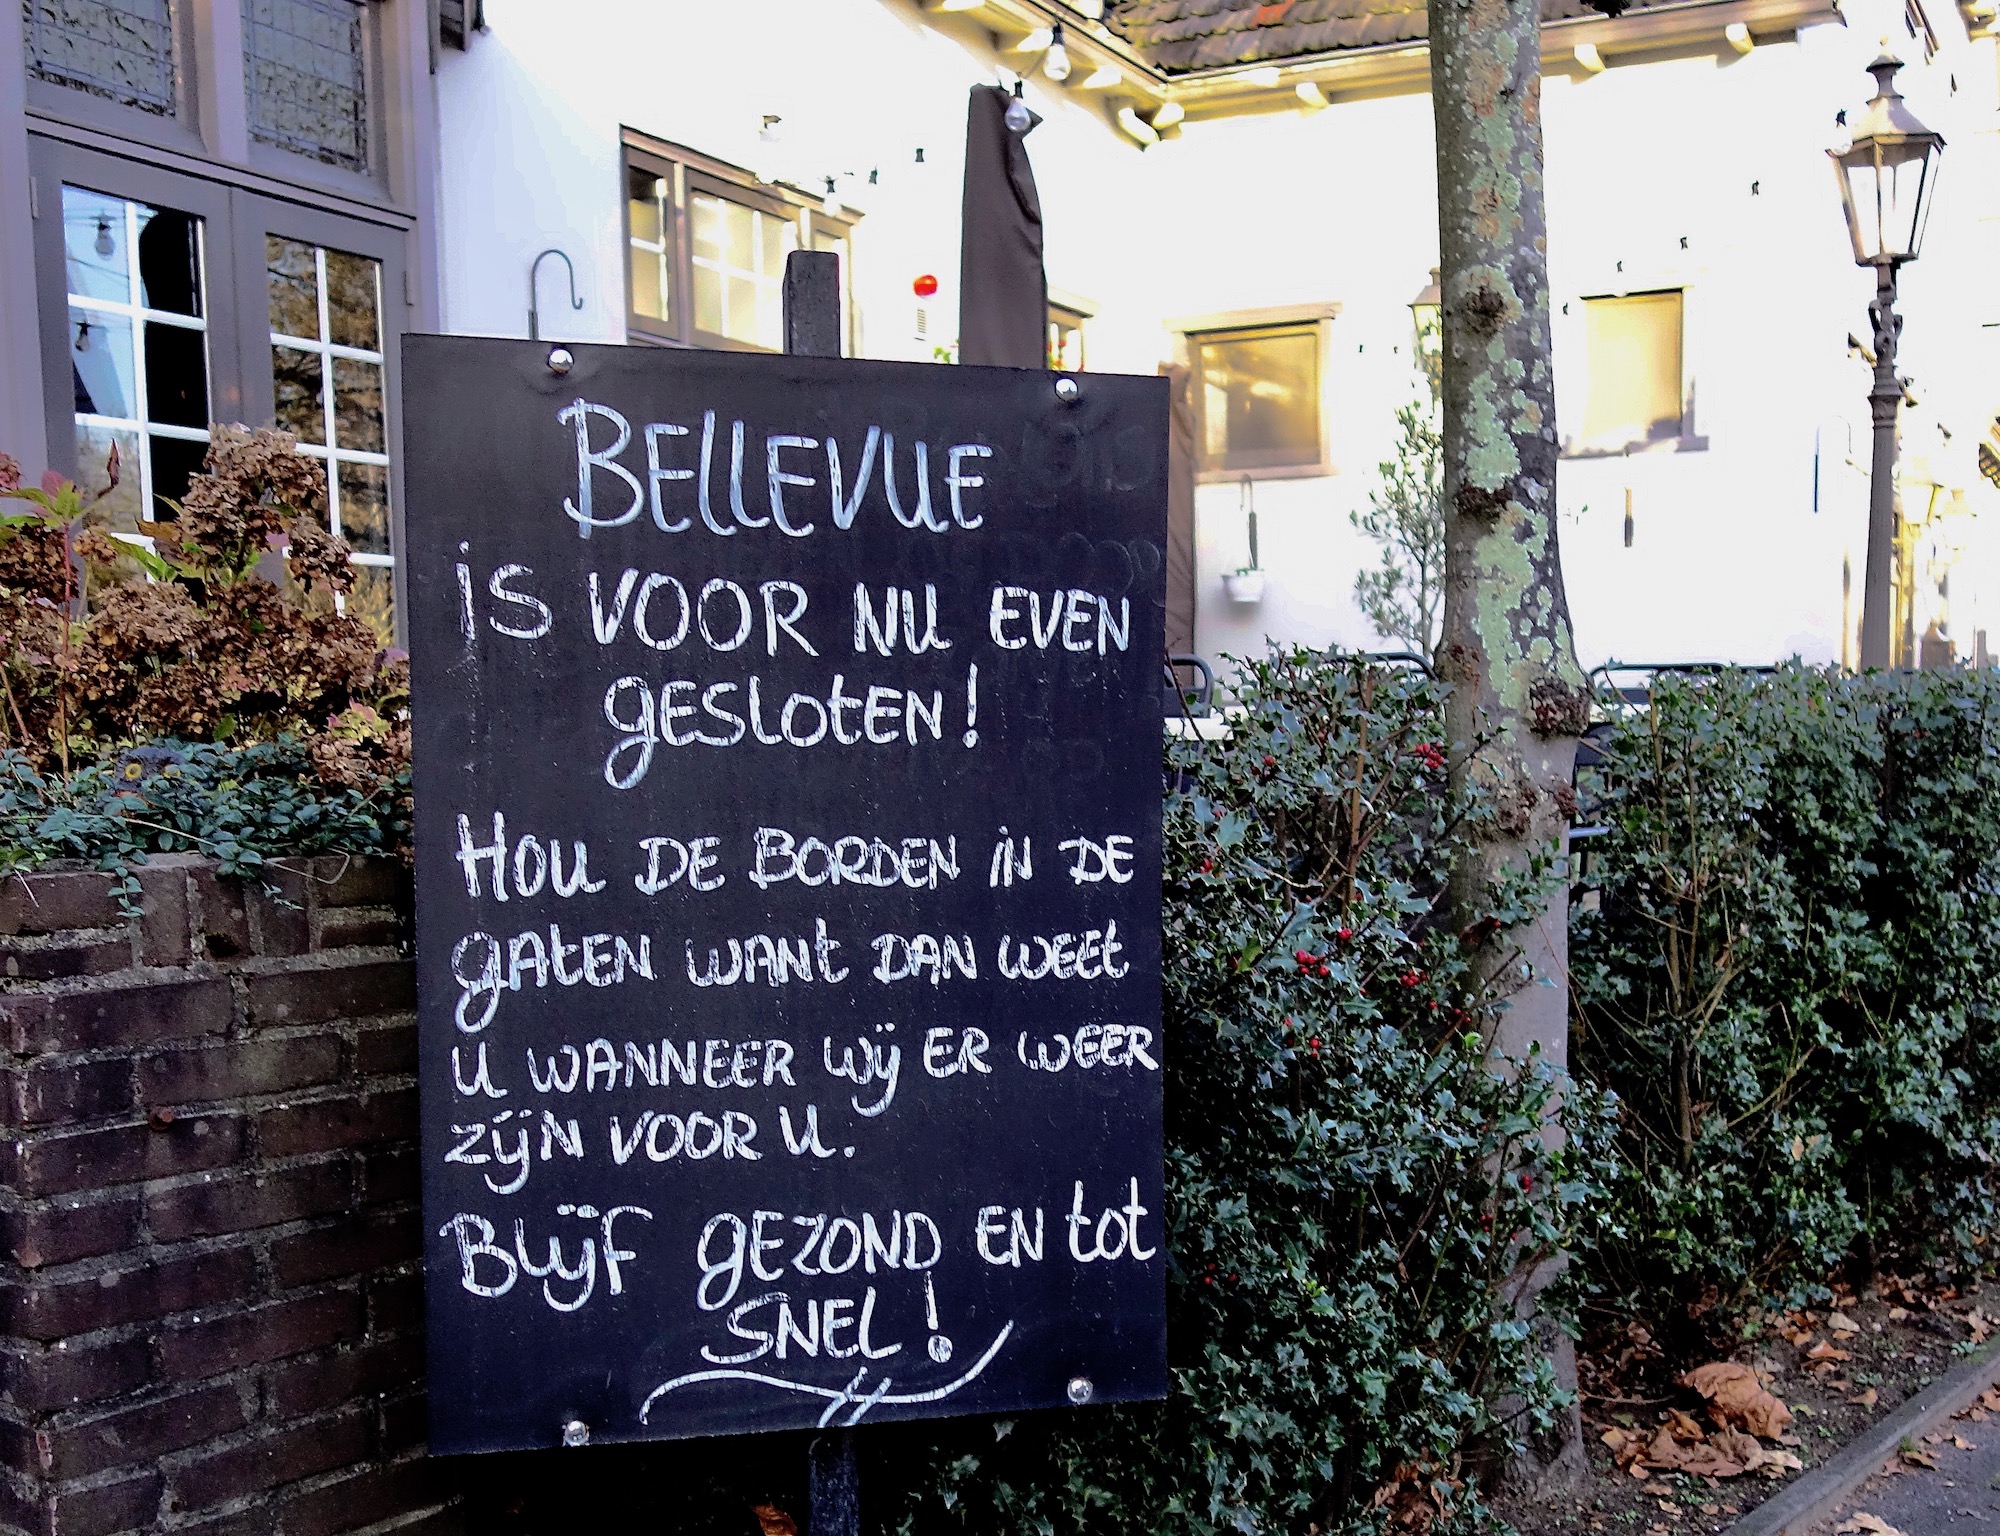 BELLEVUE
is VOOR NU EVEN
gESLOtEN!
HOU DE BORDEN iN DE
gAtEN WANt DAN WEEt
U WANNEER Wij ER WEER
ZijN VOOR U.
BLijF gEZOND EN tot
SNEL!